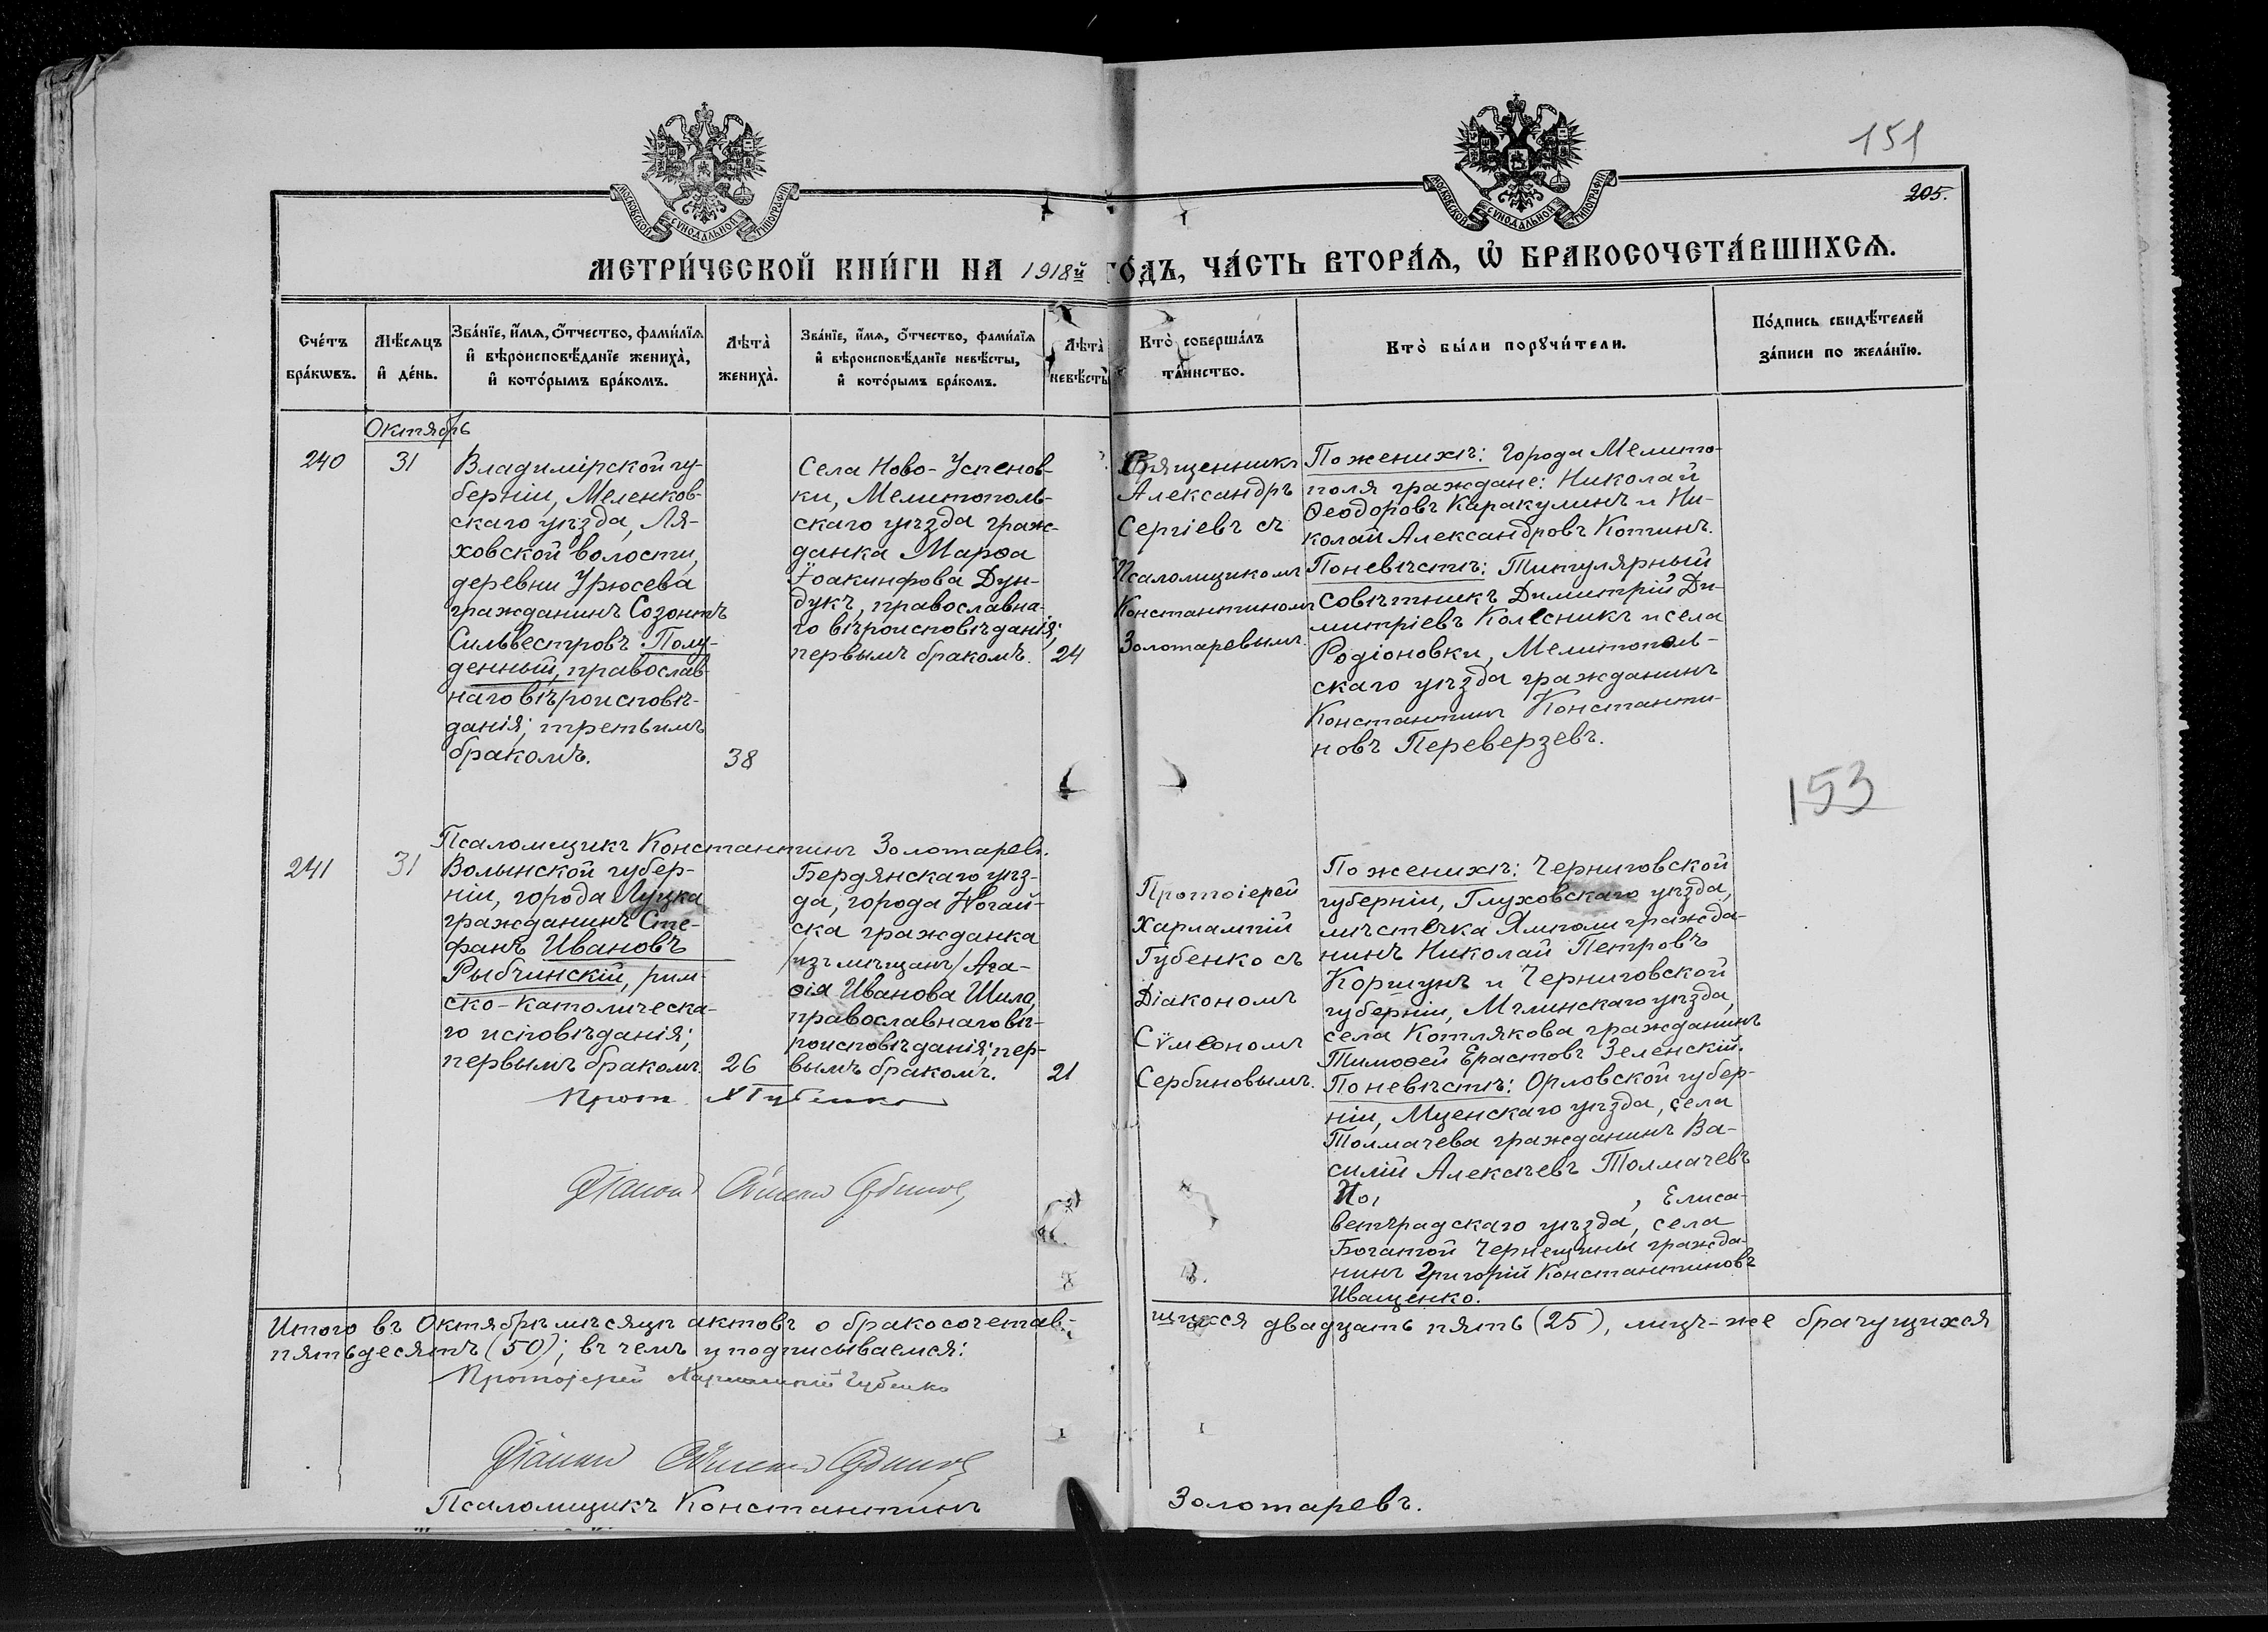 151
205.
МОСКОВСКОЙ СѴНОДАЛЬНОЙ ТИПОГРАФІИ
МОСКОВСКОЙ СѴНОДАЛЬНОЙ ТИПОГРАФІИ
МЕТРИ́ЧЕСКОЙ КНИ́ГИ НА 1918й ГО́ДЪ, ЧА́СТЬ ВТОРА́Ѧ, Ѽ БРАКОСОЧЕТА́ВШИХСѦ.
Сче́тъ
бра́кѡвъ.
Мѣ́сѧцъ
и҆ де́нь.
Зва́нїе, и҆́мѧ, ѻ҆́тчество, фами́лїѧ
и҆ вѣроисповѣ́данїе жениха̀,
и҆ кото́рымъ бра́комъ.
Лѣта̀
жениха̀.
Зва́нїе, и҆́мѧ, ѻ҆́тчество, фами́лїѧ
и҆ вѣроисповѣ́данїе невѣ́сты,
и҆ кото́рымъ бра́комъ.
Лѣта̀
невѣ́сты
Кто̀ соверша́лъ
та́инство.
Кто̀ бы́ли порꙋчи́тели.
По́дпись свидѣ́телей
за́писи по жела́нїю.
Октябрь
240
31
Владимірской гу-
берніи, Меленков-
скаго уѣзда, Ля-
ховской волости,
деревни Урюсева
гражданинъ Созонтъ
Сильвестровъ Полу-
денный, православ-
наго вѣроисповѣ-
данія; третьимъ
бракомъ.
38
Села Ново-Успенов-
ки, Мелитополь-
скаго уѣзда граж-
данка Марѳа
Іоакинфова Дун-
дукъ, православна-
го вѣроисповѣданія;
первымъ бракомъ.
24
Священникъ
Александръ
Сергіевъ съ
Псаломщикомъ
Константиномъ
Золотаревымъ.
По женихѣ: Города Мелито-
поля граждане: Николай
Ѳеодоровъ Каракулинъ и Ни-
колай Александровъ Котинъ.
По невѣстѣ: Титулярный
совѣтникъ Димитрій Ди-
митріевъ Колесникъ и села
Родіоновки, Мелитополь-
скаго уѣзда гражданинъ
Константинъ Константи-
новъ Переверзевъ.
153
Псаломщикъ Константинъ Золотаревъ.
241
31
Волынской губер-
ніи, города Луцка
гражданинъ Сте-
фанъ Ивановъ
Рыбчинскій, рим-
ско-католическа-
го исповѣданія;
первымъ бракомъ.
26
Бердянскаго уѣз-
да, города Ногай-
ска гражданка
/изъ мѣщанъ/ Ага-
ѳія Иванова Шило,
православнаго вѣ-
роисповѣданія; пер-
вымъ бракомъ.
21
Протоіерей
Харлампій
Губенко съ
Діакономъ
Сѵмеономъ
Сербиновымъ.
По женихѣ: Черниговской
губерніи, Глуховскаго уѣзда,
мѣстечка Ямполи гражда-
нинъ Николай Петровъ
Коршунъ и Черниговской
губерніи, Мглинскаго уѣзда,
села Котлякова гражданинъ
Тимоѳей Ерастовъ Зеленскій.
По невѣстѣ: Орловской губер-
ніи, Мценскаго уѣзда, села
Толмачева гражданинъ Ва-
силій Алексѣевъ Толмачевъ
, Елиса-
ветградскаго уѣзда, села
Богатой Чернещины гражда-
нинъ Григорій Константиновъ
Иващенко.
Прот. Х Губенко
Діаконъ Сѵмеонъ Сербиновъ
Итого въ Октябрѣ мѣсяцѣ актовъ о бракосочетав-
шихся двадцать пять (25), лицъ-же брачущихся
пятьдесятъ (50); въ чемъ и подписываемся:
Протоіерей Харлампій Губенко
Діаконъ Сѵмеонъ Сербиновъ
Псаломщикъ Константинъ Золотаревъ.